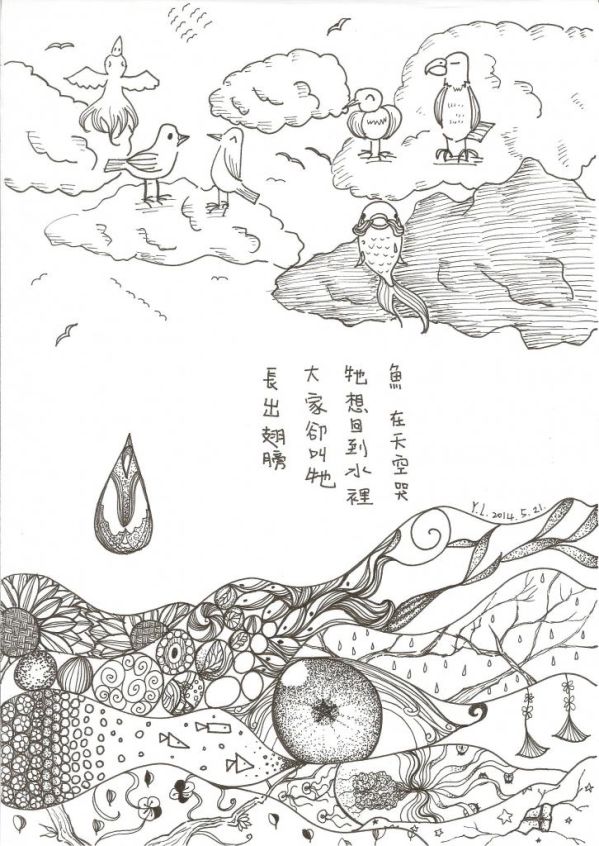 魚 在天空哭
牠想回到水裡
大家卻叫牠
長出翅膀
Y.L. 2014.5.21.